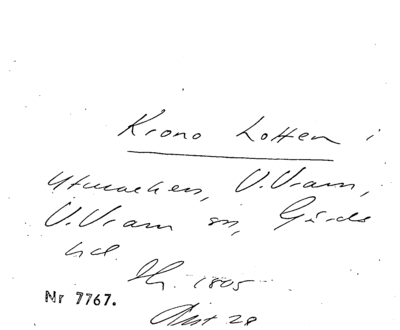 Krono Lotten i
Utmarken, V.Vram,
V.Vram sn, Gärds
hd.
1805
Nr 7767.
Akt 28